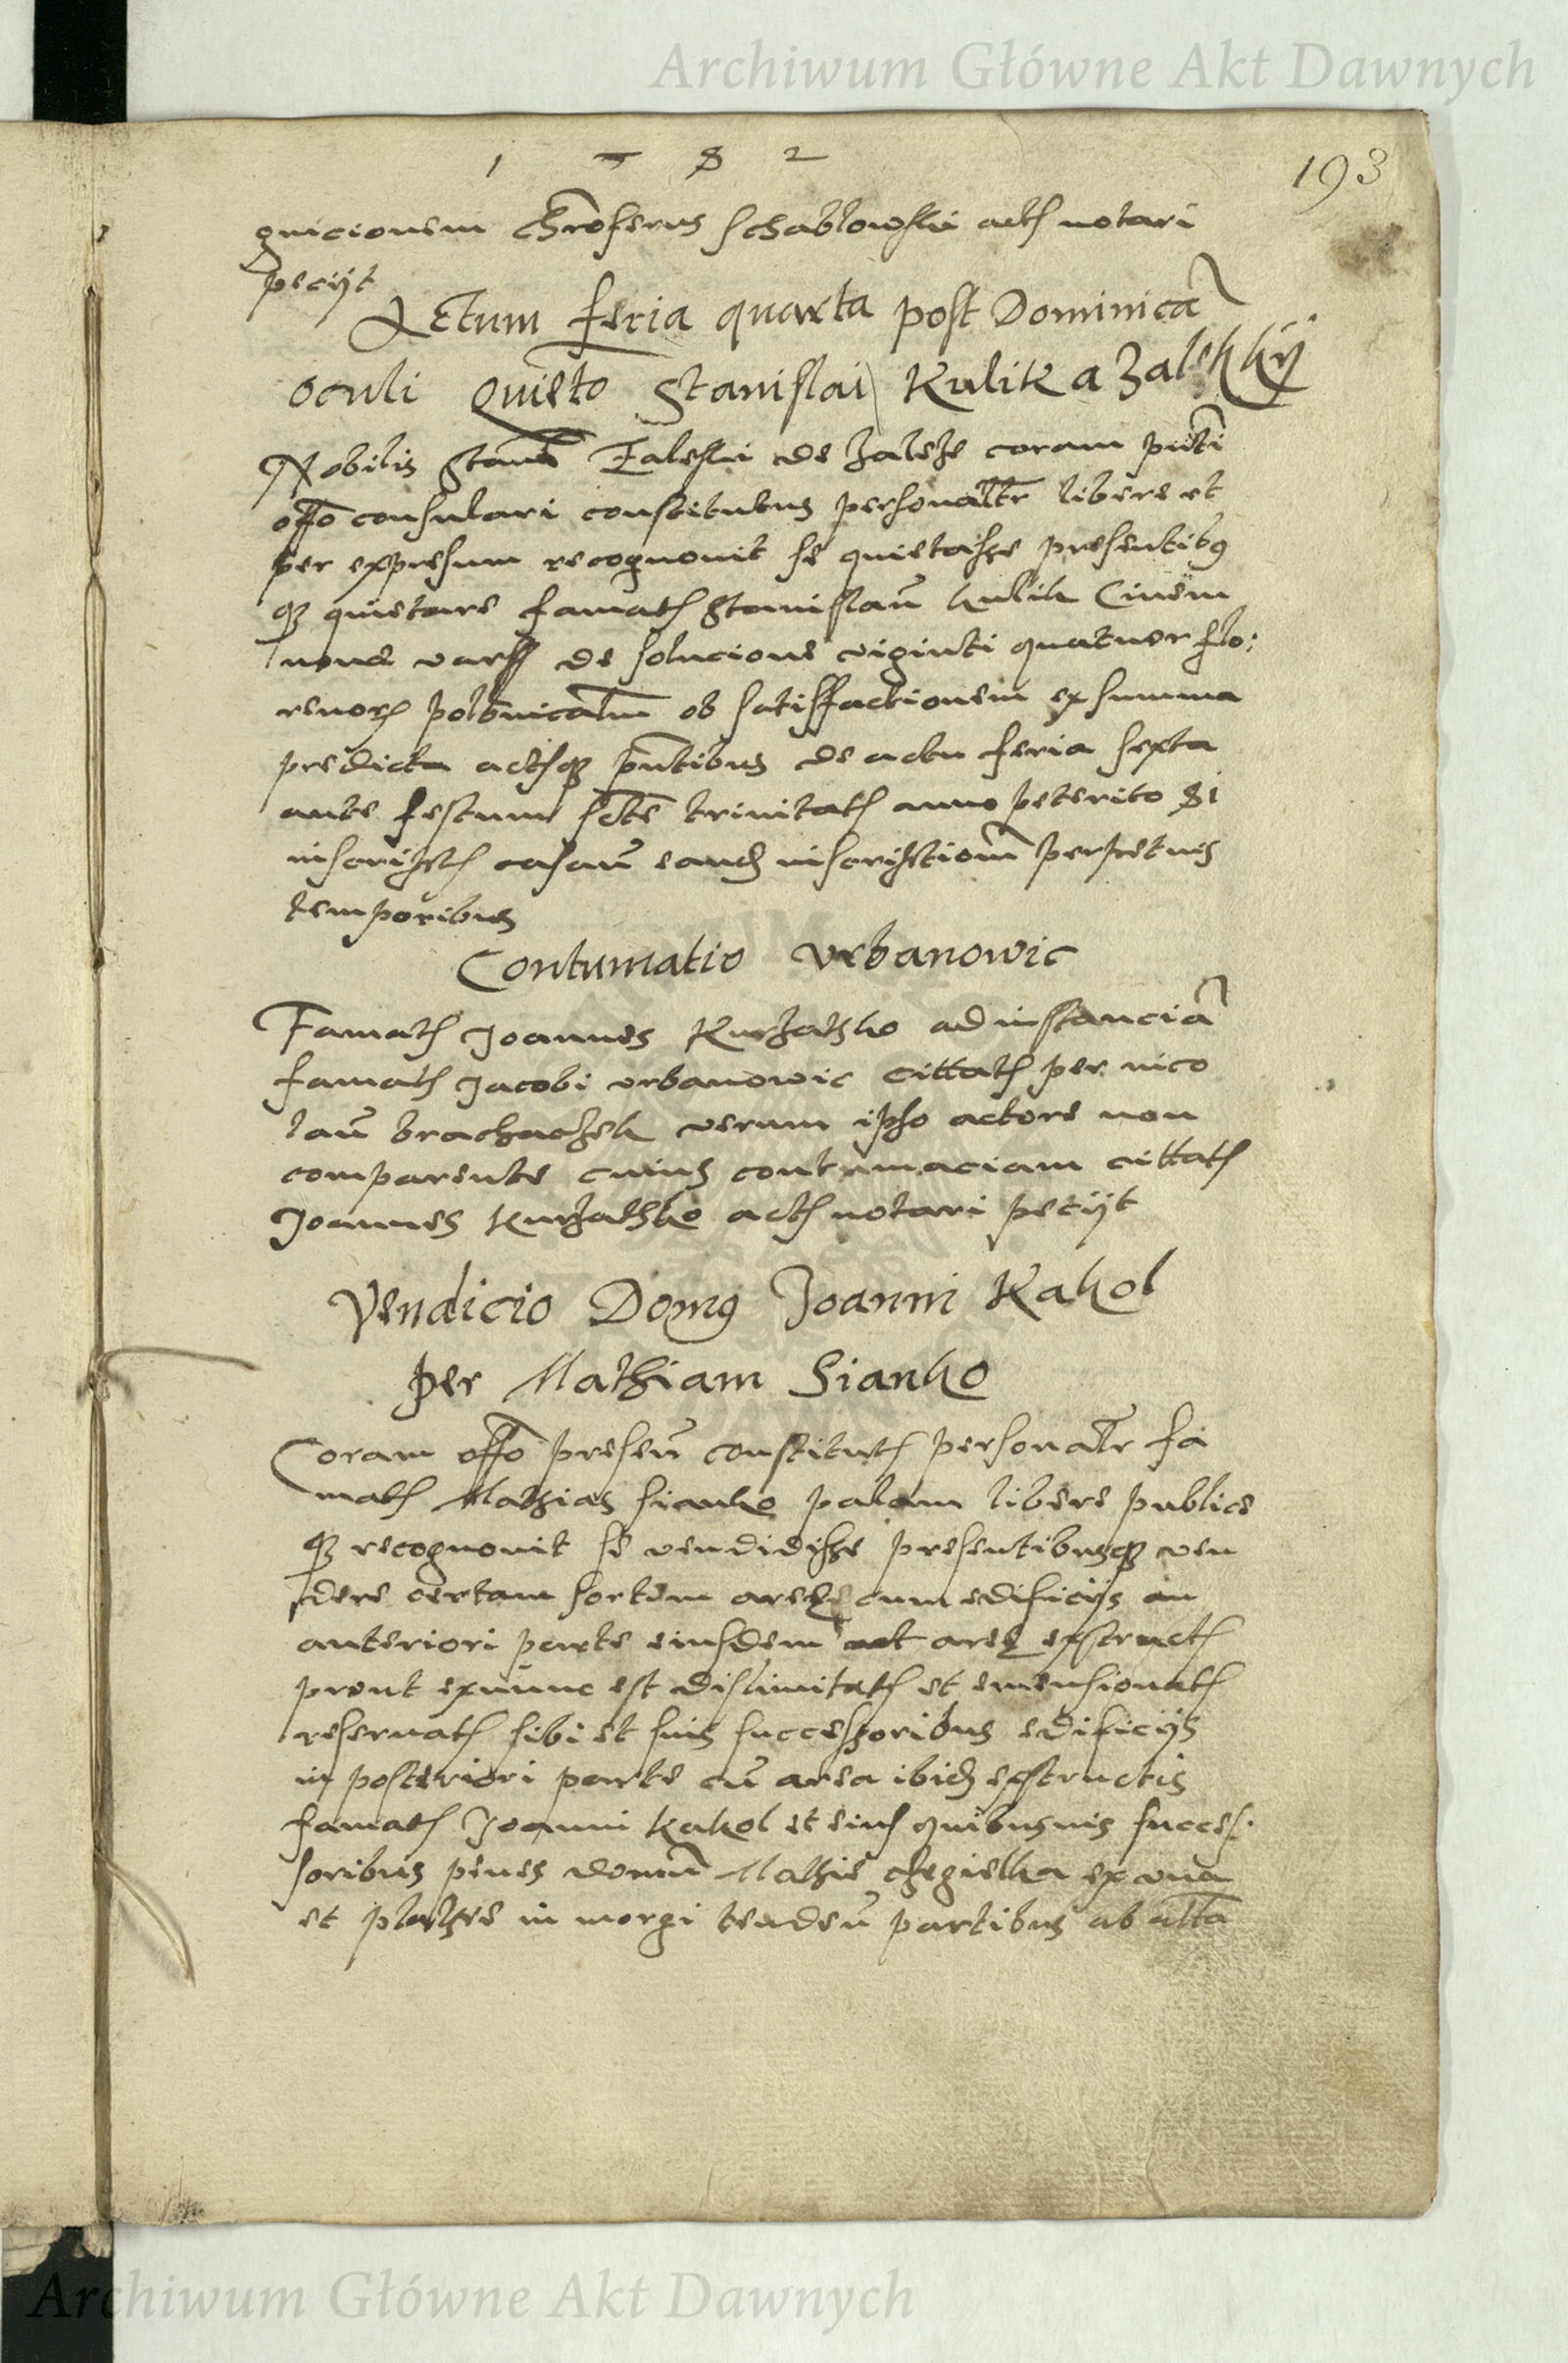 Archiwum Główne Akt Dawnych
1 5 8 2
193
gnicionem Chroferus Schablowski actis notari
peciit
Actum feria quarta post Dominica
Oculi Quieto Stanislai Kulik a Zalesky
Nobilis Stans Zaleski de Zaleze coram pnti
offo consulari constitutus personaltr libere et
per expresum recognovit se quietasse presentibus
que quietare famatum Stanislau Kulik Civem
nove vars de solucione viginti quatuor flo:
renorum polonicalm ob satisffactionem ex summa
predicta actisque pntibus de actu feria sexta
ante festum scte trinitatis anno peterito 81
inscriptis casau eandem inscriptiom perpetuis
temporibus
Contumatio Urbanowic
Famatus Joannes Kurzatzko ad instancia
famati Jacobi Urbanowic cittatus per nico
lau brachaczek verum ipso actore non
comparente cuius contumaciam cittatus
Joannes Kurzatzko actis notari peciit
Vendicio Domus Joanni Kakol
per Mathiam Sianko
Coram offo presenu constitutus personalr fa
matus Mathias sianko palam libere publice
que recognovit se vendidisse presentibusque ven
dere certam sortem aree cum edificiis in
anteriori parte eiusdem aree exstructis
prout exnunc est dislimitatum et emensionatum
reservatis sibi et suis successoribus edificiis
in posteriori parte cu area ibidem exstructis
famato Joanni Kakol et eius quibusuis succes:
soribus penes domu Mathie chegielka ex una
et platee in morgi tendenu partibus ab alta
Archiwum Główne Akt Dawnych